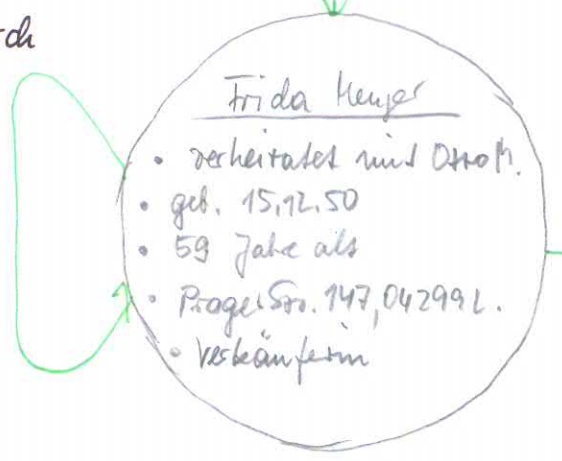 Frida Menger
• verheiratet mit Otto M.
• geb. 15.12.50
• 59 Jahre alt
• Prager Str. 147, 04299 L.
• Verkäuferin